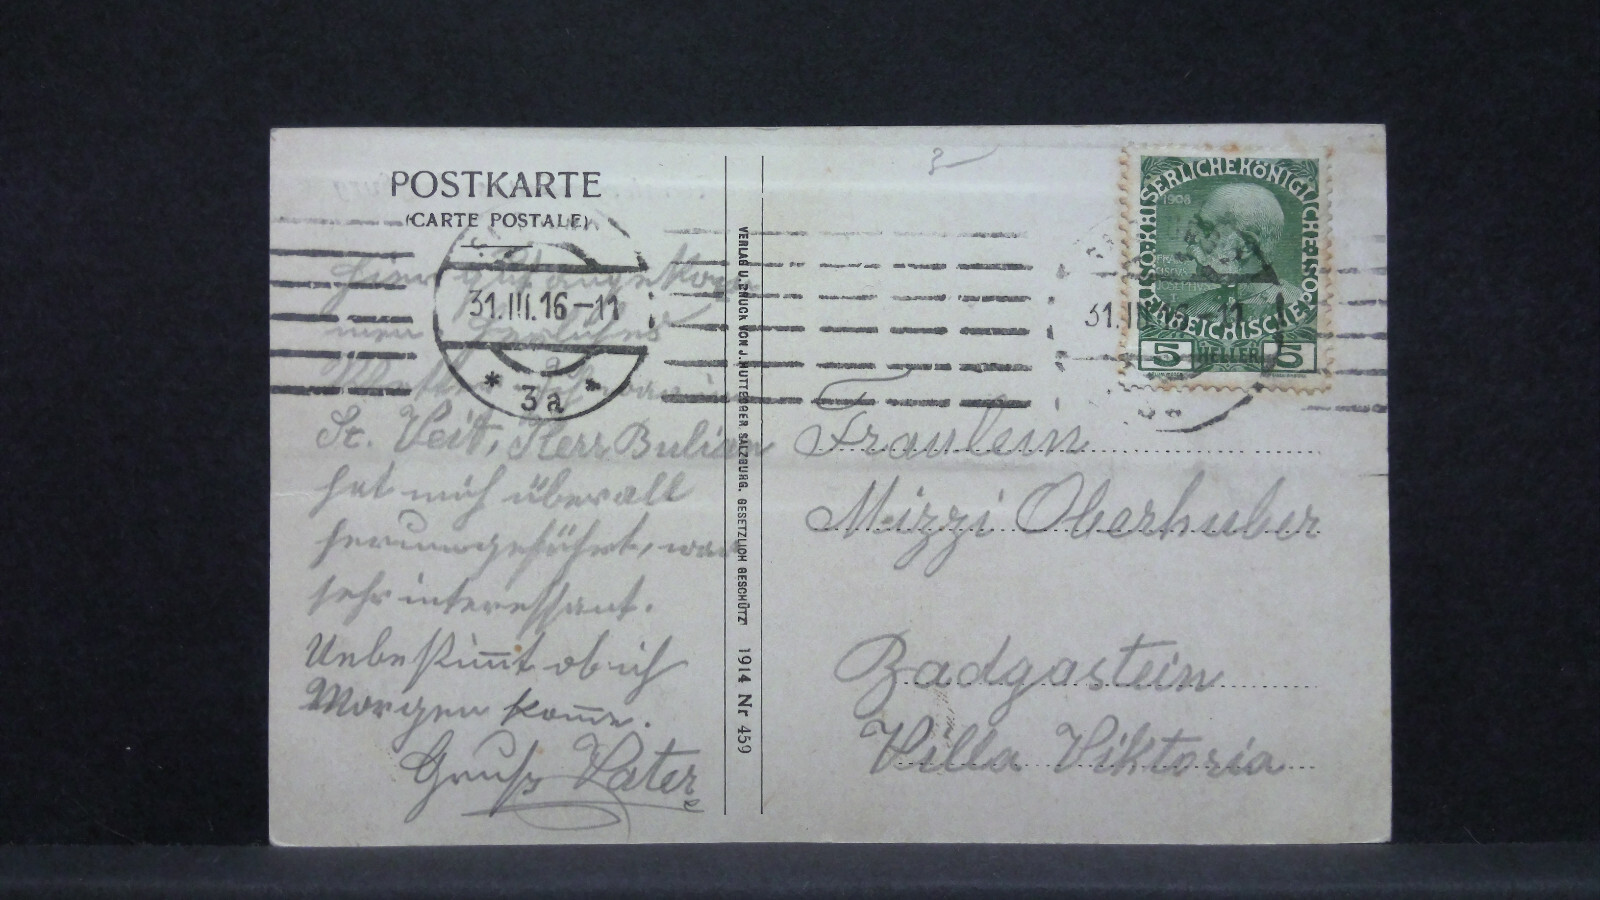 POSTKARTE
(CARTE POSTALE)
31.III.16-11
* 3a *
Hier gut angekom
men herrliches
St. Veit, Herr Bulian
hat mich überall
herumgeführt, war
sehr interessant.
Unbestimmt ob ich
Morgen komme.
Gruß Vater
VERLAG U. DRUCK VON J. HUTTEGGER SALZBURG. GESETZLICH GESCHÜTZT 1914 Nr 459
KAISERLICHE KÖNIGLICHE ÖSTERREICHISCHE POST
1908
FRAN
CISCVS
JOSEPHVS
I
5 HELLER 5
31.III.16-11
Fräulein
Mizzi Oberhuber
Badgastein
Villa Viktoria